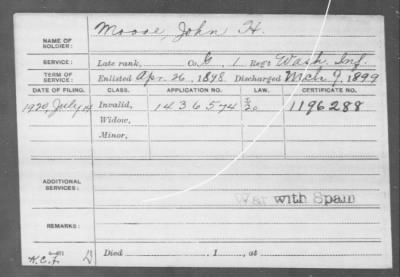 NAME OF SOLDIER: Moore, John H.
SERVICE: Late rank, Co. G, 1 Reg't Wash. Inf.
TERM OF SERVICE: Enlisted Apr. 26, 1898 Discharged Mch 9, 1899
DATE OF FILING. CLASS. APPLICATION NO. LAW. CERTIFICATE NO.
1920, July Invalid, 1436574 1196288
Widow,
Minor,
ADDITIONAL SERVICES:
War with Spain
REMARKS:
Died , 1 , at